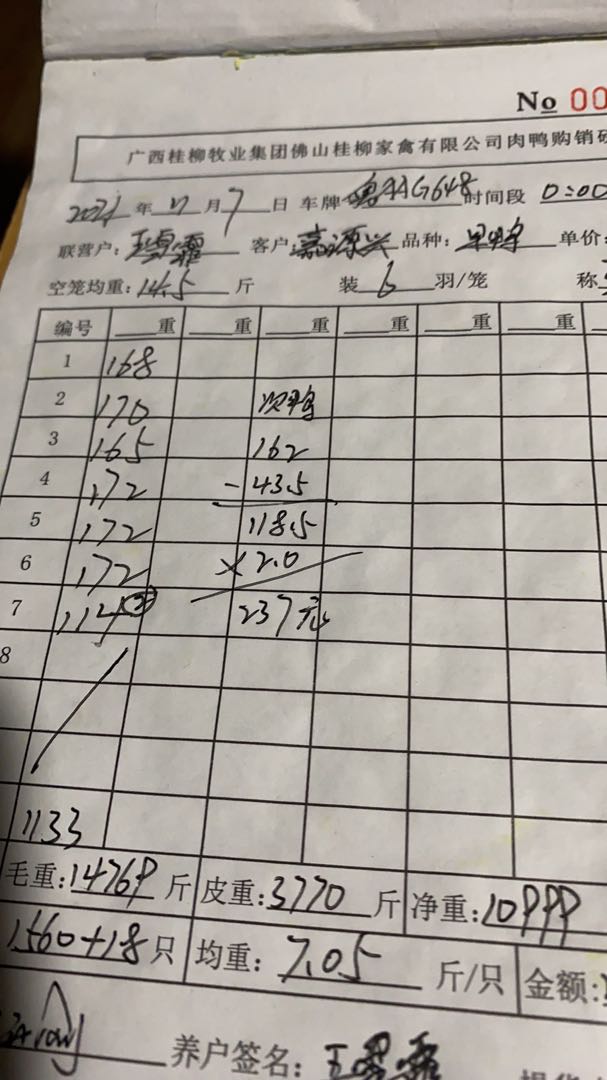 No 00
广西桂柳牧业集团佛山桂柳家禽有限公司肉鸭购销
2021年 11月7日 车牌 粤AAG648 时间段 0:00
联营户: 王雪霏 客户: 嘉源兴 品种: 单价:
空笼均重: 14.5 斤 装 6 羽/笼 称
编号 重 重 重 重 重 重
1 168
2 170 次鸭
3 165 162
4 172 -43.5
5 172 118.5
6 172 ×2.0
7 114② 237元
8
1133
毛重: 14769 斤 皮重: 3770 斤 净重: 10999
1560+18 只 均重: 7.05 斤/只 金额:
养户签名: 王雪霏